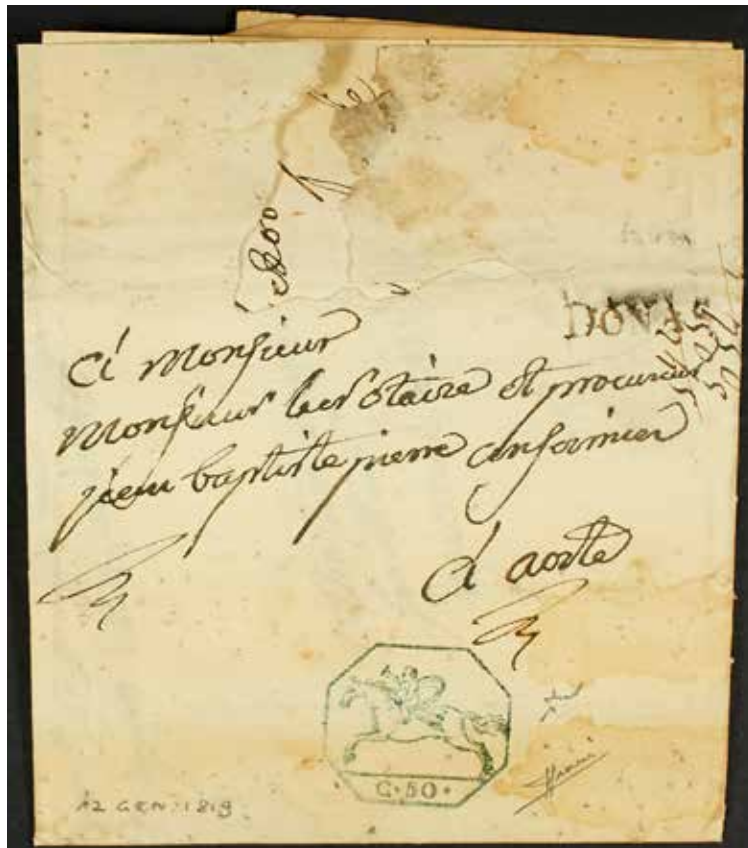 DOVAS
à Monsieur
Monsieur le notaire et procureur
jean baptiste pierre
à aoste
C. 50.
12 GEN: 1819